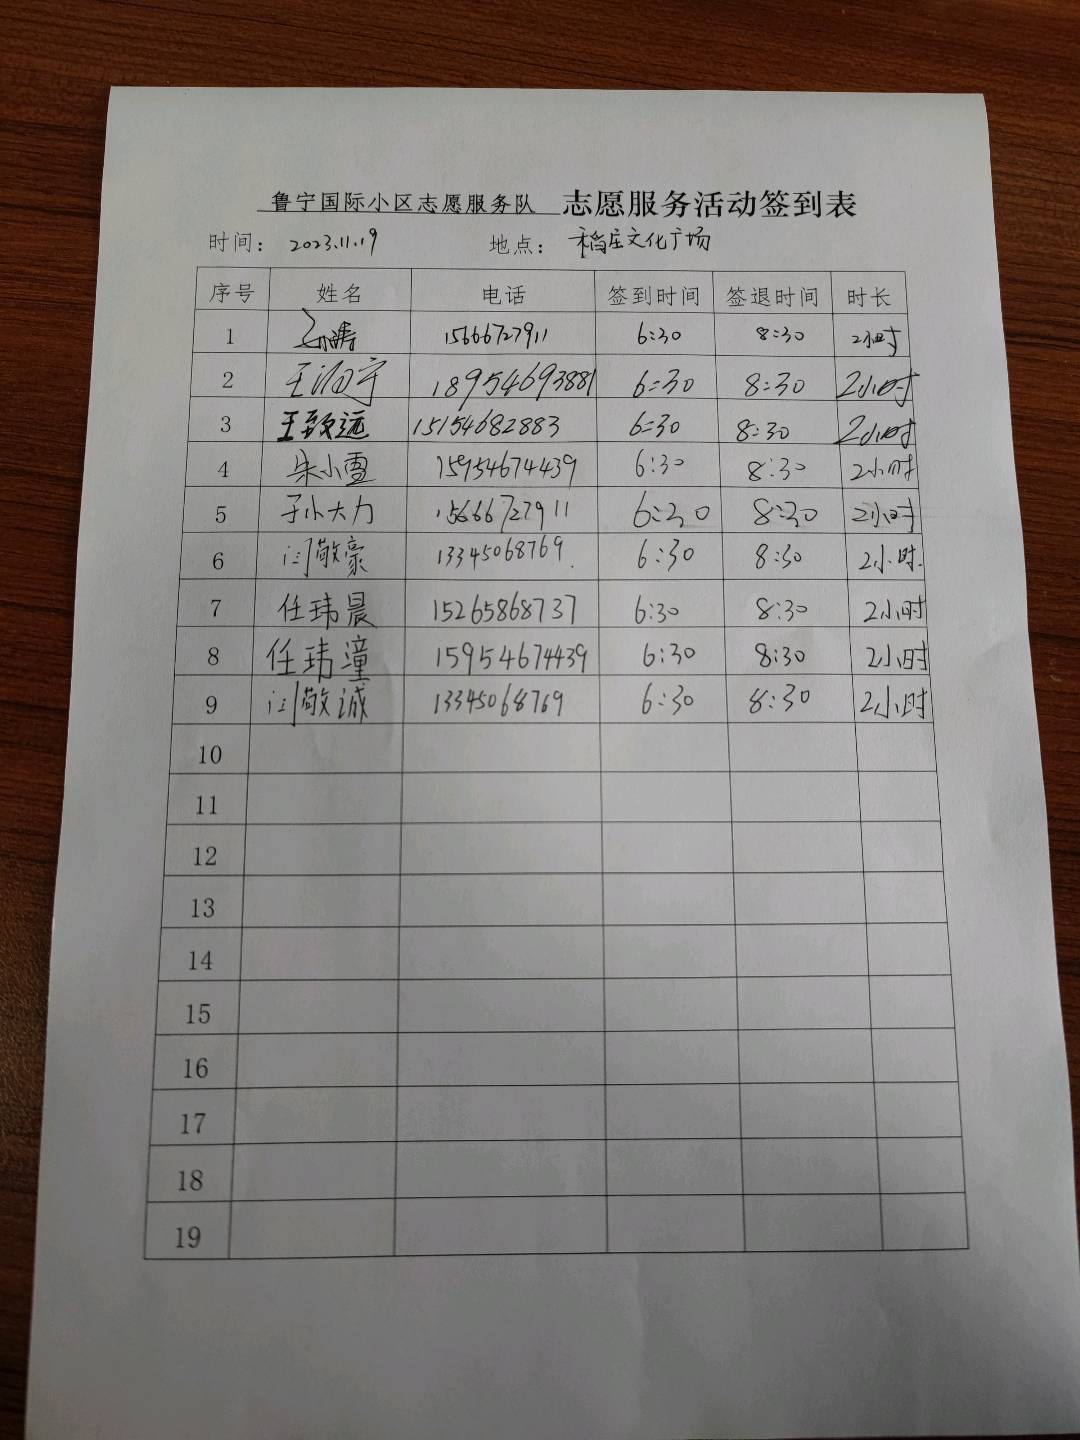 鲁宁国际小区志愿服务队 志愿服务活动签到表
时间: 2023.11.19 地点: 稻庄文化广场
序号 姓名 电话 签到时间 签退时间 时长
1 15666727911 6:30 8:30 2小时
2 18954693881 6:30 8:30 2小时
3 王致远 15154682883 6:30 8:30 2小时
4 朱小雪 15954674439 6:30 8:30 2小时
5 孙大力 15666727911 6:30 8:30 2小时
6 闫敬豪 13345068769 6:30 8:30 2小时
7 任玮晨 15265868737 6:30 8:30 2小时
8 任玮潼 15954674439 6:30 8:30 2小时
9 闫敬诚 13345068769 6:30 8:30 2小时
10
11
12
13
14
15
16
17
18
19